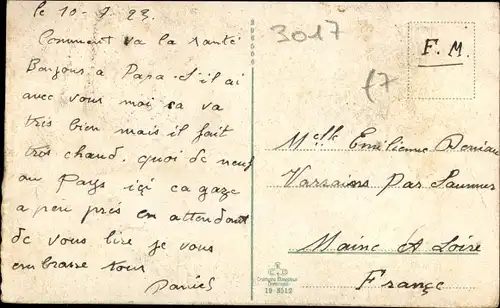 le 10-7 23.
Comment va la santé
Bonjour a Papa S'il ai
avec vous moi sa va
très bien mais il fait
trés chaud. quoi de neuf
au Pays içi ca gaze
a peu prés en attendant
de vous lire je vous
embrasse tous
Daniel
3017
F. M.
£7
Melle Emilienne Deniau
Varrains par Saumur
Maine et Loire
France
19-8512